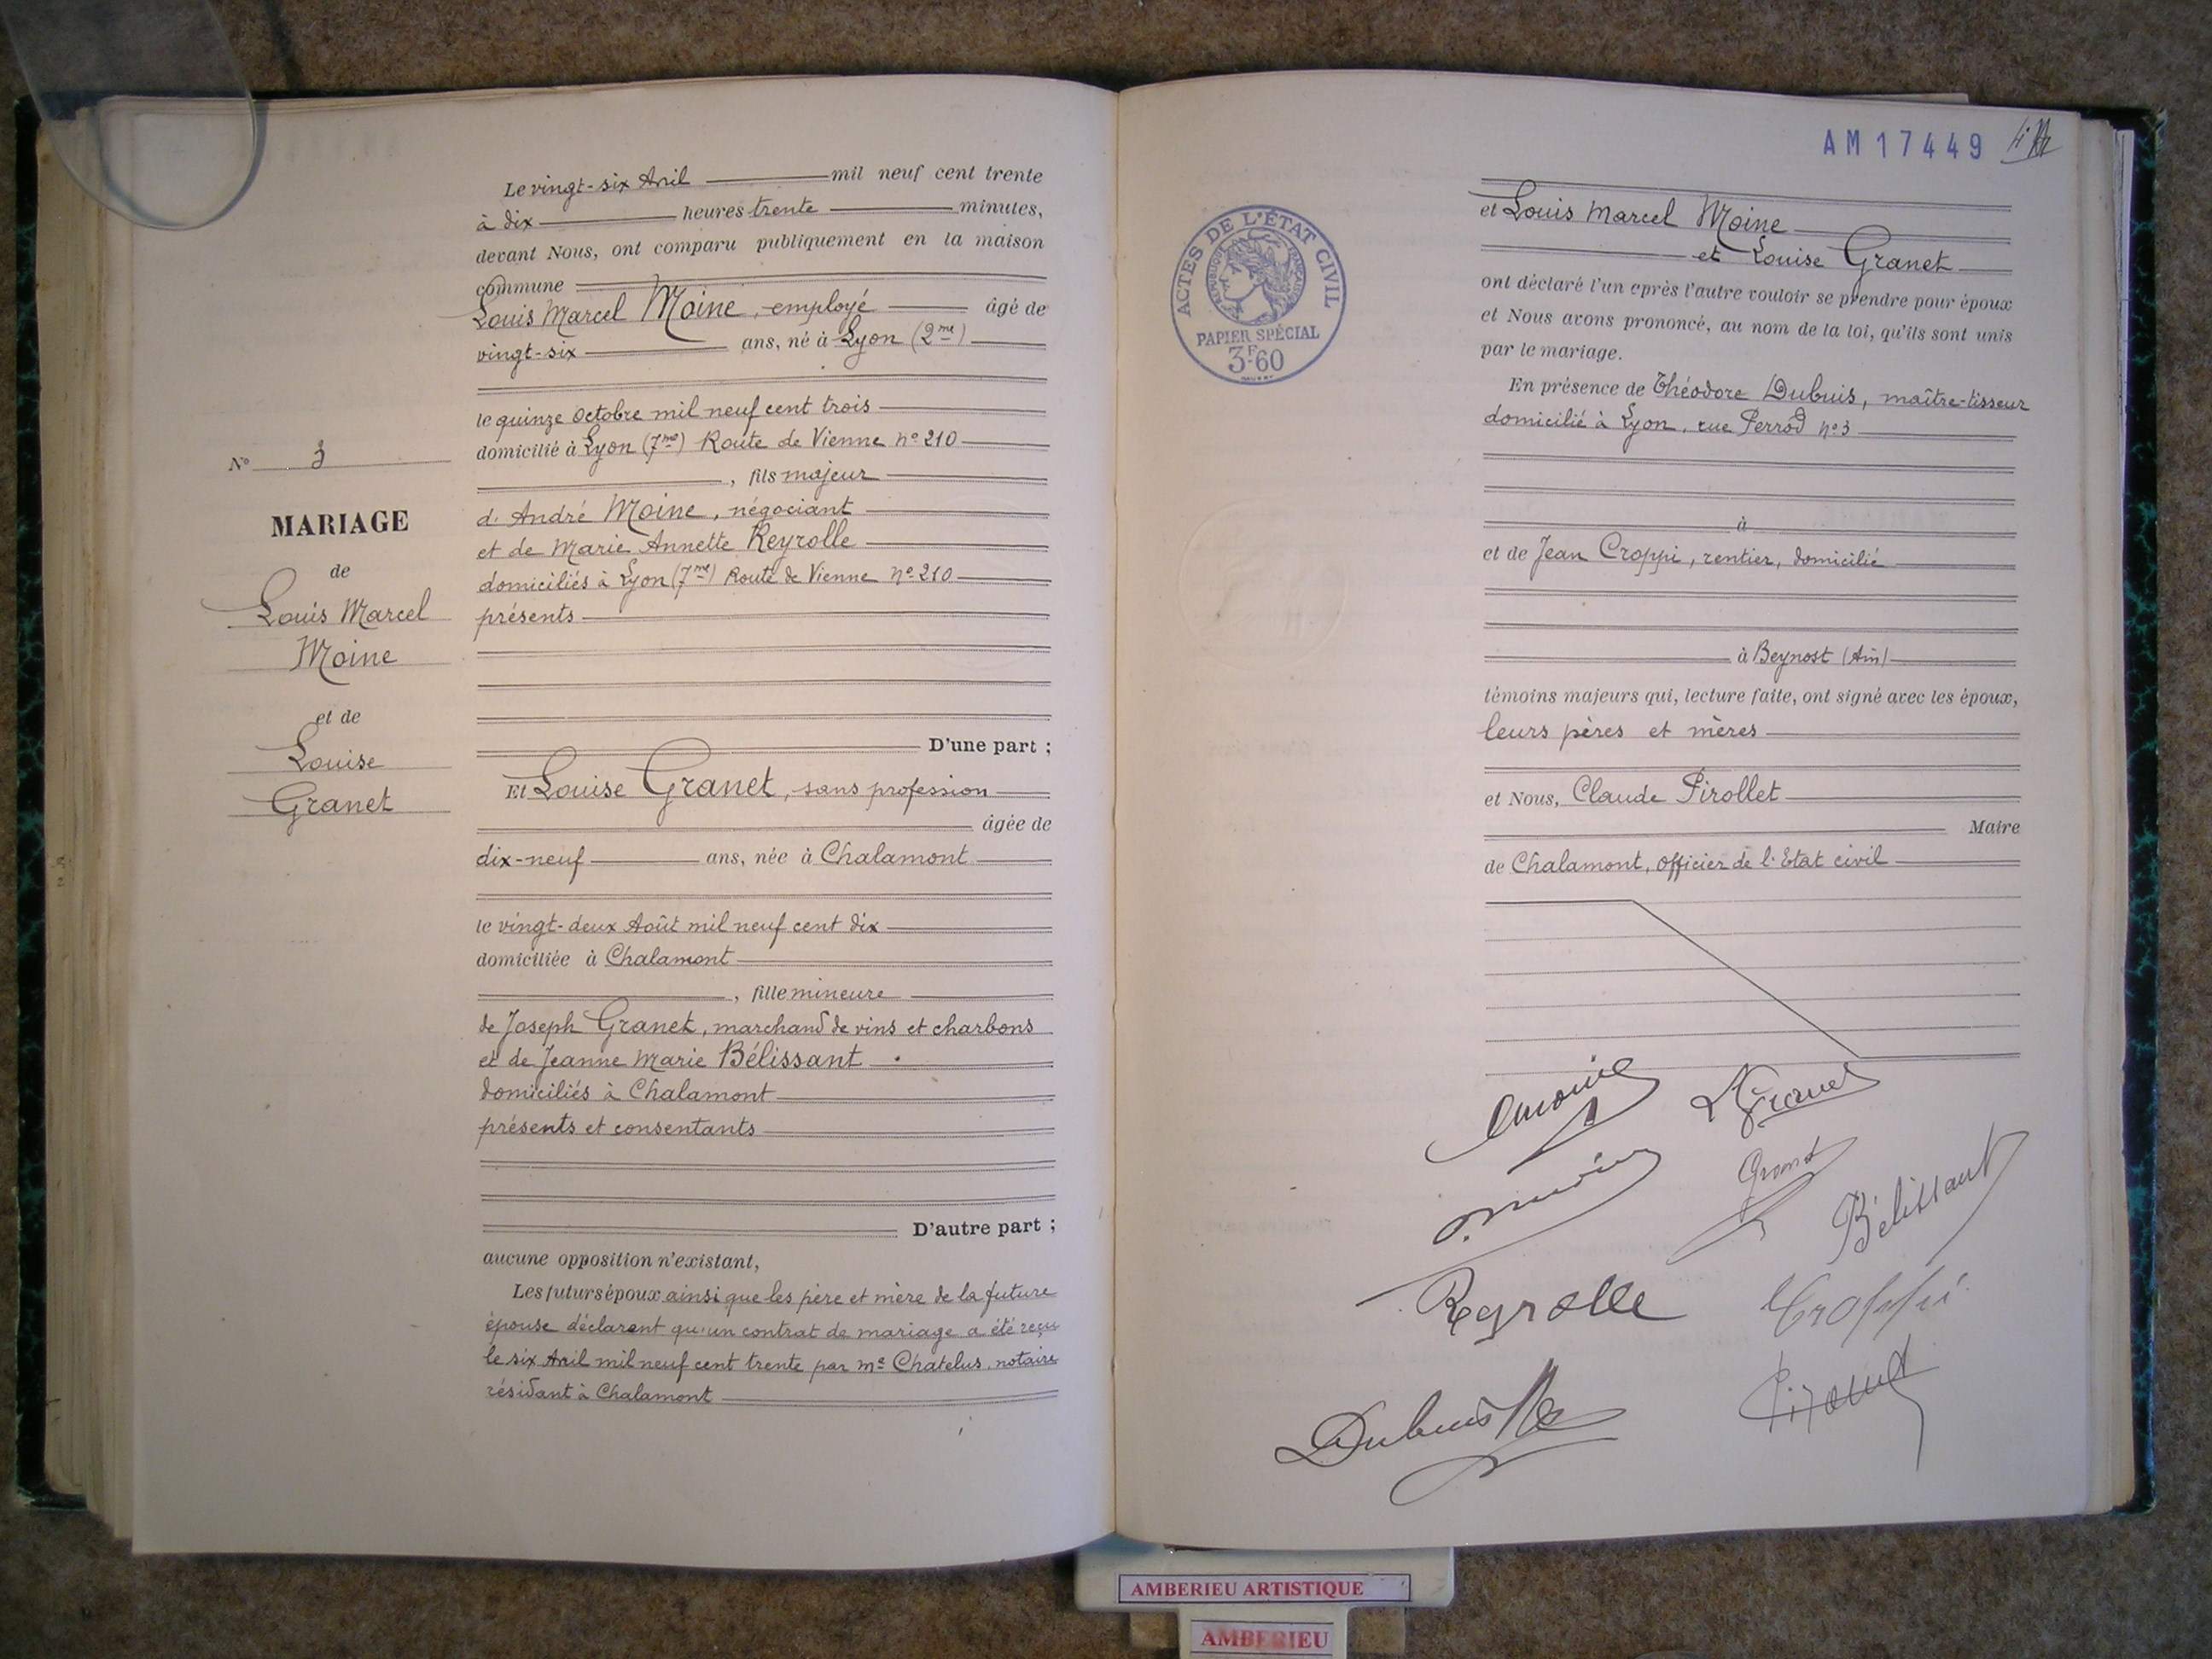 Le vingt-six Avril mil neuf cent trente
à dix heures trente minutes,
devant Nous, ont comparu publiquement en la maison
commune
Louis Marcel Moine, employé âgé de
vingt-six ans, né à Lyon (2me)
le quinze Octobre mil neuf cent trois
domicilié à Lyon (7me) Route de Vienne no 210
, fils majeur
d'André Moine, négociant
et de Marie Annette Reyrolle
domiciliés à Lyon (7me) Route de Vienne No 210
présents
D'une part ;
Et Louise Granet, sans profession
âgée de
dix-neuf ans, née à Chalamont
le vingt-deux Août mil neuf cent dix
domiciliée à Chalamont
, fille mineure
de Joseph Granet, marchand de vins et charbons
et de Jeanne Marie Bélissant
domiciliés à Chalamont
présents et consentants
D'autre part ;
aucune opposition n'existant,
Les futurs époux ainsi que les père et mère de la future
épouse déclarent qu'un contrat de mariage a été reçu
le six Avril mil neuf cent trente par Me Chatelus, notaire
résidant à Chalamont
No 3
MARIAGE
de
Louis Marcel
Moine
et de
Louise
Granet
AM17449
ACTES DE L'ÉTAT CIVIL
RÉPUBLIQUE FRANÇAISE
PAPIER SPÉCIAL
3F60
et Louis Marcel Moine
et Louise Granet
ont déclaré l'un après l'autre vouloir se prendre pour époux
et Nous avons prononcé, au nom de la loi, qu'ils sont unis
par le mariage.
En présence de Théodore Dubuis, maître-tisseur
domicilié à Lyon, rue Perrod no 3
à
et de Jean Croppi, rentier, domicilié
à Beynost (Ain)
témoins majeurs qui, lecture faite, ont signé avec les époux,
leurs pères et mères
et Nous, Claude Pirollet
Maire
de Chalamont, officier de l'Etat civil
LGranet
Granet
Bélissant
Reyrolle
Croppi
Dubuis
Pirollet
AMBERIEU ARTISTIQUE
AMBERIEU